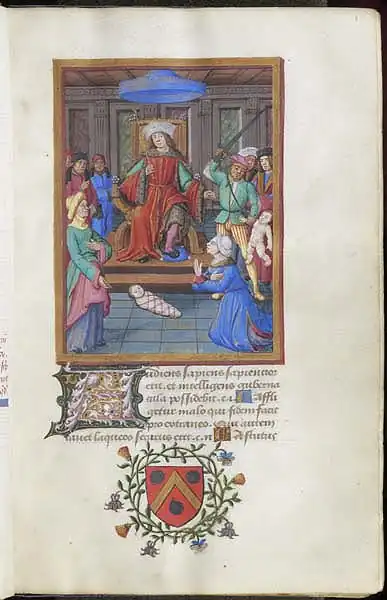 Audiens sapiens sapientior
erit. et intelligens guberna
cula possidebit. c. i. Affli
getur malo qui fidem facit
pro extraneo. qui autem
cavet laqueos securus erit. c. xi Astutus